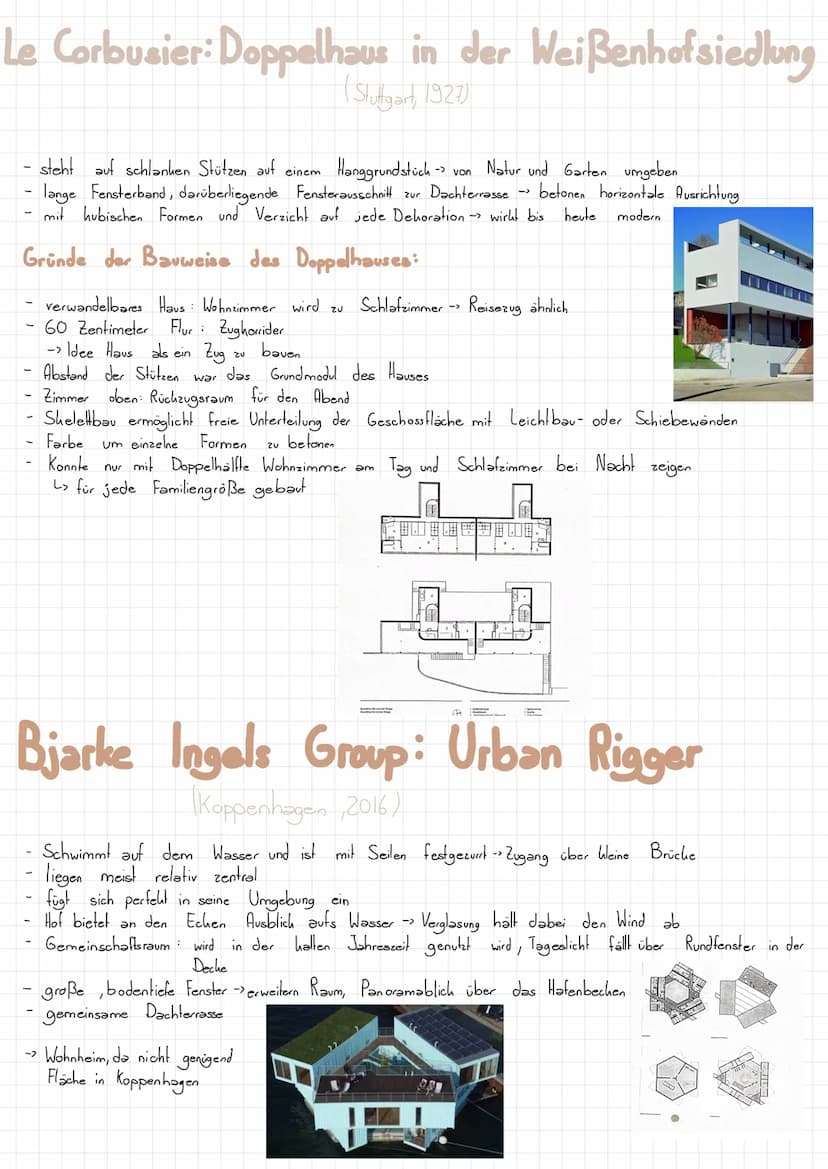 Le Corbusier: Doppelhaus in der Weißenhofsiedlung
(Stuttgart, 1927)
- steht auf schlanken Stützen auf einem Hanggrundstück -> von Natur und Garten umgeben
- lange Fensterband, darüberliegende Fensterausschnitt zur Dachterrasse -> betonen horizontale Ausrichtung
- mit kubischen Formen und Verzicht auf jede Dekoration -> wirkt bis heute modern
Gründe der Bauweise des Doppelhauses:
- verwandelbares Haus: Wohnzimmer wird zu Schlafzimmer -> Reisezug ähnlich
- 60 Zentimeter Flur: Zugkorrider
-> Idee Haus als ein Zug zu bauen
- Abstand der Stützen war das Grundmodul des Hauses
- Zimmer oben: Rückzugsraum für den Abend
- Skelettbau ermöglicht freie Unterteilung der Geschossfläche mit Leichtbau- oder Schiebewänden
- Farbe um einzelne Formen zu betonen
- Konnte nur mit Doppelhälfte Wohnzimmer am Tag und Schlafzimmer bei Nacht zeigen
↳ für jede Familiengröße gebaut
Bjarke Ingels Group: Urban Rigger
(Koppenhagen, 2016)
- Schwimmt auf dem Wasser und ist mit Seilen festgezurrt -> Zugang über kleine Brücke
- liegen meist relativ zentral
- fügt sich perfekt in seine Umgebung ein
- Hof bietet an den Ecken Ausblick aufs Wasser -> Verglasung hält dabei den Wind ab
- Gemeinschaftsraum: wird in der kalten Jahreszeit genutzt wird, Tageslicht fällt über Rundfenster in der
Decke
- große, bodentiefe Fenster -> erweitern Raum, Panoramablick über das Hafenbecken
- gemeinsame Dachterrasse
-> Wohnheim, da nicht genügend
Fläche in Koppenhagen